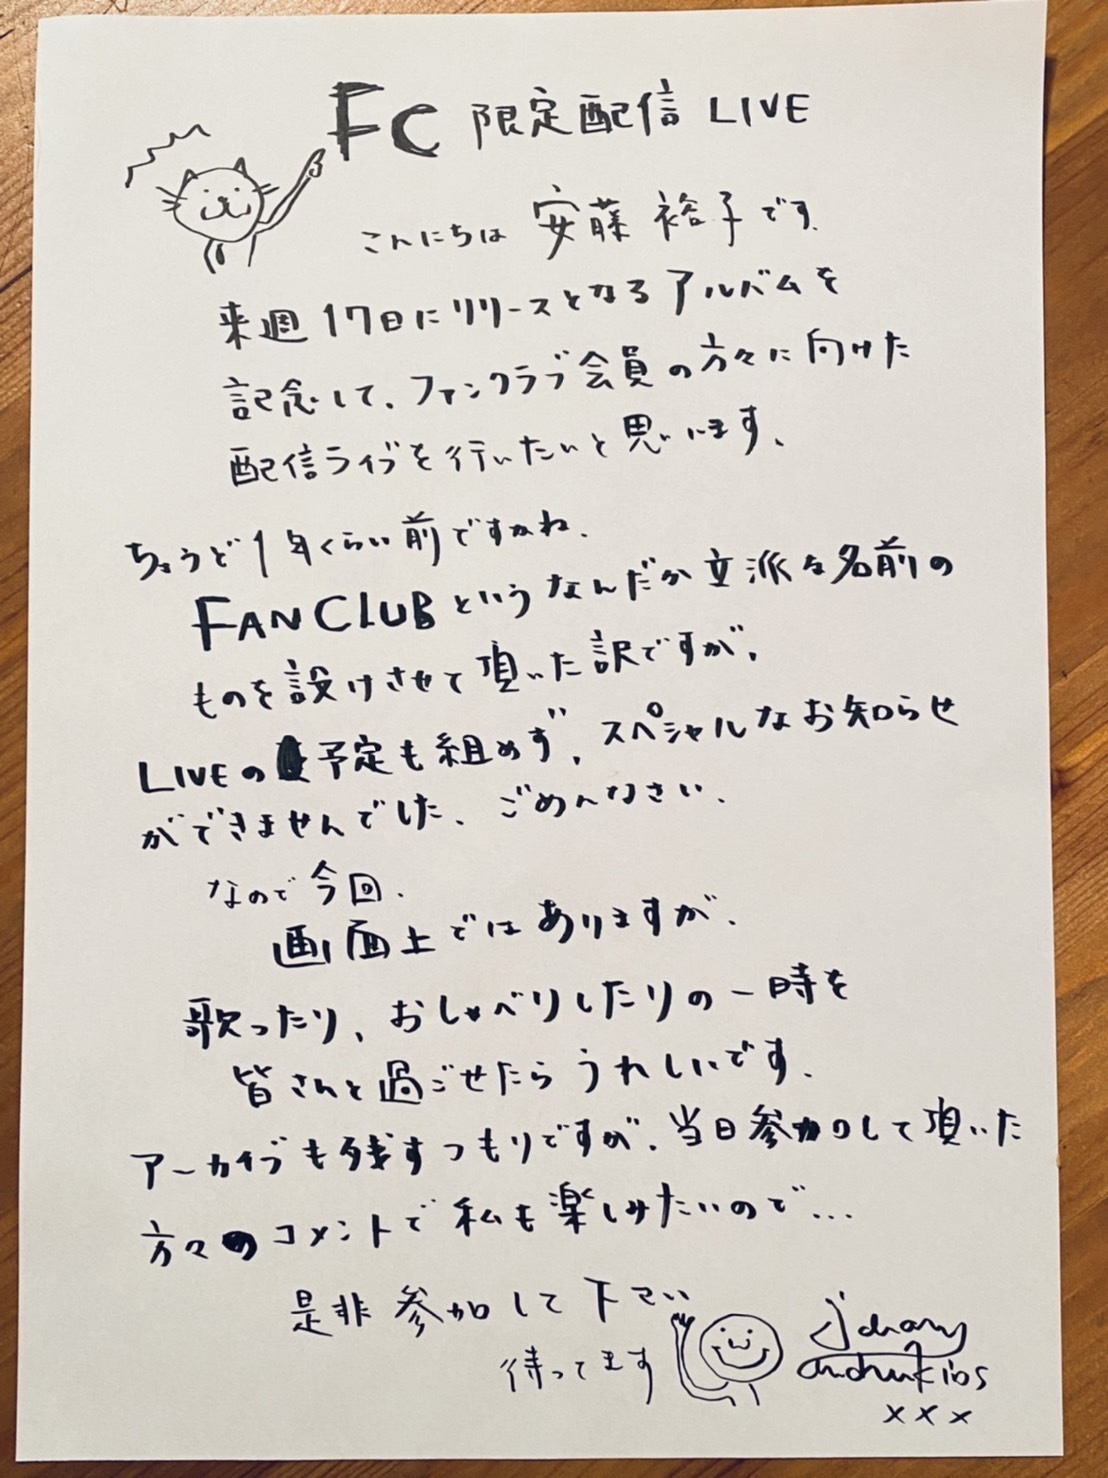 FC 限定配信 LIVE
こんにちは 安藤 裕子です.
来週17日にリリースとなるアルバムを
記念して、ファンクラブ会員の方々に向けた
配信ライブを行いたいと思います、
ちょうど1年くらい前ですかね、
FAN CLUBというなんだか立派な名前の
ものを設けさせて頂いた訳ですが、
LIVEの予定も組めず、スペシャルなお知らせ
ができませんでした、ごめんなさい、
なので今回、
画面上ではありますが、
歌ったり、おしゃべりしたりの一時を
皆さんと過ごせたらうれしいです、
アーカイブも残すつもりですが、当日参加して頂いた
方々のコメントで私も楽しみたいので...
是非 参加して下さい
待ってます
xxx